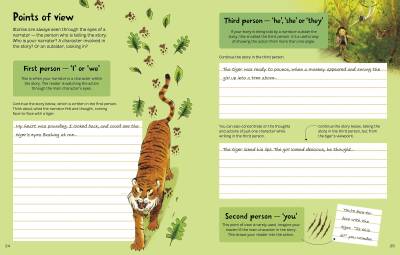 Points of view
Stories are always seen through the eyes of a
narrator – the person who is telling the story.
Who is your narrator? A character involved in
the story? Or an outsider, looking in?
First person – 'I' or 'we'
This is when your narrator is a character within
the story. The reader is watching the action
through the main character's eyes.
Continue the story below, which is written in the first person.
Think about what the narrator felt and thought, coming
face-to-face with a tiger.
My heart was pounding. I looked back, and could see the
tiger's eyes flashing at me...
24
Third person – 'he', 'she' or 'they'
If your story is being told by a narrator outside the
story, this is called the third person. It is a useful way
of showing the action from more than one angle.
Continue the story in the third person.
The tiger was ready to pounce, when a monkey appeared and swung the
girl up into a tree above...
You can also concentrate on the thoughts
and actions of just one character while
writing in the third person.
Continue the story below, telling the
story in the third person, but from
the tiger's viewpoint.
The tiger licked his lips. The girl looked delicious, he thought...
Second person – 'you'
This point of view is rarely used. Imagine your
reader IS the main character in the story.
This draws your reader into the action.
You're face to
face with the
tiger. "Is this
it?" you wonder.
25